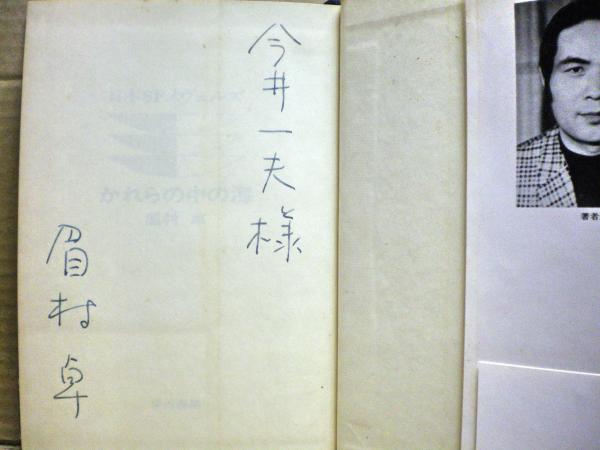 今井一夫様
眉村卓
日本SFノヴェルズ
かれらの中の海
眉村 卓
早川書房
著者